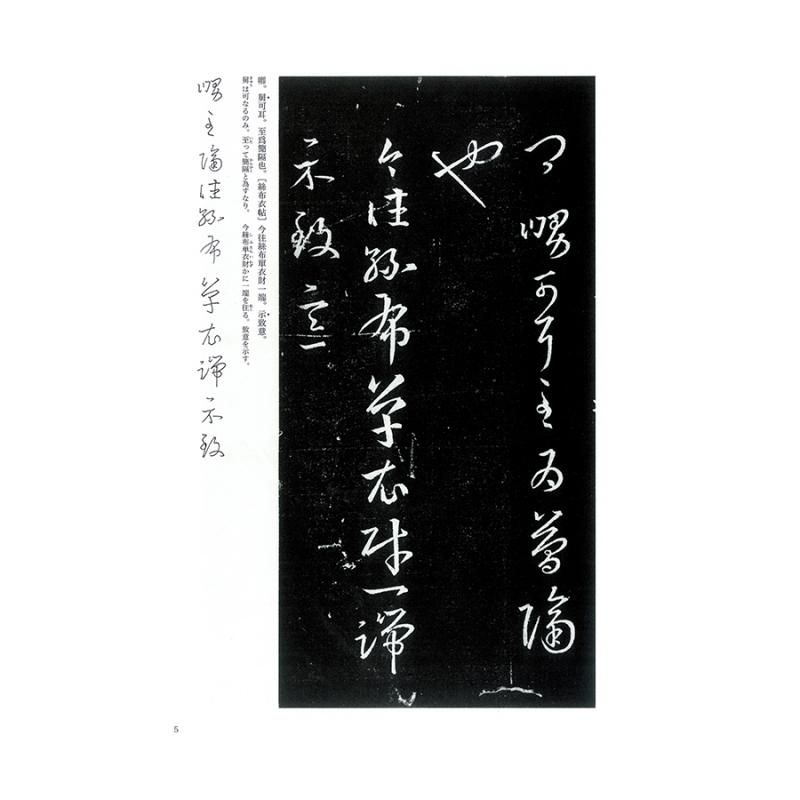 卿舅可耳至爲簡隔
也
今往絲布單衣財一端
示致意
卿。舅可耳。至爲簡隔也。［絲布衣帖］今往絲布單衣財一端。示致意。
舅は可なるのみ。至って簡隔と為すなり。 今絲布単衣財かに一端を往る。致意を示す。
舅至隔往絲布單衣端示致
5